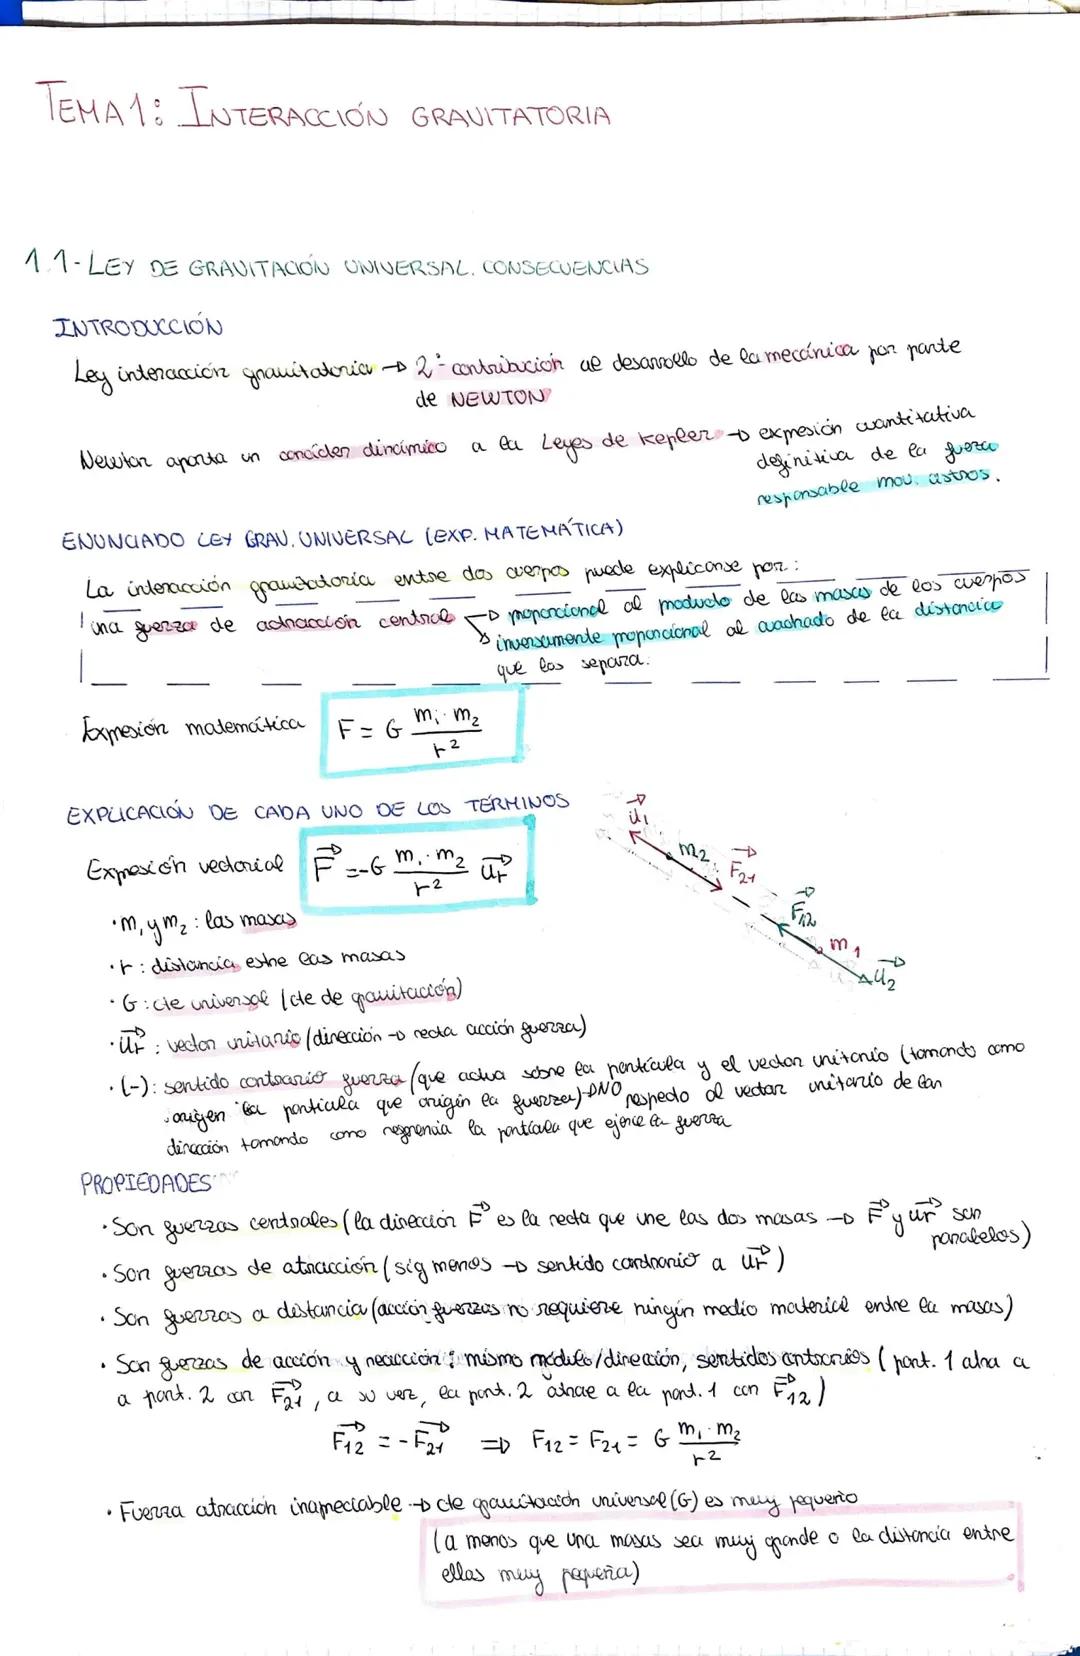 TEMA 1: INTERACCIÓN GRAVITATORIA
1.1- LEY DE GRAVITACIÓN UNIVERSAL. CONSECUENCIAS
INTRODUCCIÓN
Ley interacción gravitatoria → 2ª contribución al desarrollo de la mecánica por parte
de NEWTON
Newton aporta un carácter dinámico a la Leyes de Kepler → expresión cuantitativa
definitiva de la fuerza
responsable mov. astros.
ENUNCIADO LEY GRAV. UNIVERSAL (EXP. MATEMÁTICA)
La interacción gravitatoria entre dos cuerpos puede explicarse por:
una fuerza de atracción central → proporcional al producto de las masas de los cuerpos
↘ inversamente proporcional al cuadrado de la distancia
que los separa.
Expresión matemática F = G m₁·m₂ / r²
EXPLICACIÓN DE CADA UNO DE LOS TÉRMINOS
Expresión vectorial F⃗ = -G m₁·m₂ / r² u⃗r
u⃗₁
m₂
F⃗₂₁
F⃗₁₂
m₁
u⃗₂
· m₁ y m₂: las masas
· r: distancia entre las masas
· G: cte universal (cte de gravitación)
· u⃗r: vector unitario (dirección → recta acción fuerza)
· (-): sentido contrario fuerza (que actua sobre la partícula y el vector unitario (tomando como
origen la partícula que origin la fuerza) → NO respecto al vector unitario de la
dirección tomando como referencia la partícula que ejerce la fuerza
PROPIEDADES
· Son fuerzas centrales (la dirección F⃗ es la recta que une las dos masas → F⃗ y u⃗r son
paralelos)
· Son fuerzas de atracción (sig menos → sentido contrario a u⃗r)
· Son fuerzas a distancia (acción fuerzas no requiere ningún medio material entre la masas)
· Son fuerzas de acción y reacción: mismo módulo/dirección, sentidos contrarios (part. 1 atrae a
a part. 2 con F⃗₂₁, a su vez, la part. 2 atrae a la part. 1 con F⃗₁₂)
F⃗₁₂ = -F⃗₂₁ ⇒ F₁₂ = F₂₁ = G m₁·m₂ / r²
· Fuerza atracción inapreciable → cte gravitación universal (G) es muy pequeño
(a menos que una masas sea muy grande o la distancia entre
ellas muy pequeña)